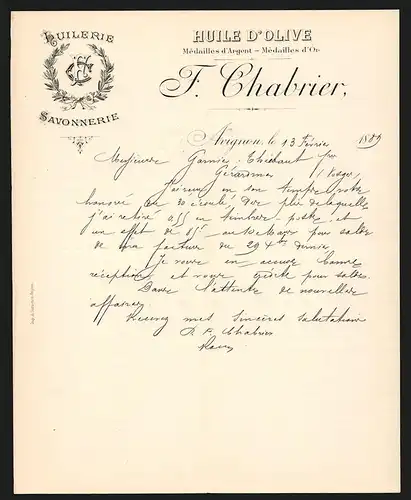 HUILERIE
SAVONNERIE
HUILE D'OLIVE
Médailles d'Argent - Médailles d'Or
F. Chabrier,
Avignon, le 13 février 1889
Messieurs Garnier Thiébaut frs
Gérardmer (Vosges)
J'ai reçu en son temps votre
honorée du 30 écoulé du pli de laquelle
j'ai retiré en timbres-poste et
un effet de au pour solde
de ma facture du 29 dernier
Je vous en accuse bonne
réception et vous pour solde.
Dans l'attente de nouvelles
affaires
Recevez mes sincères salutations
P. F. Chabrier